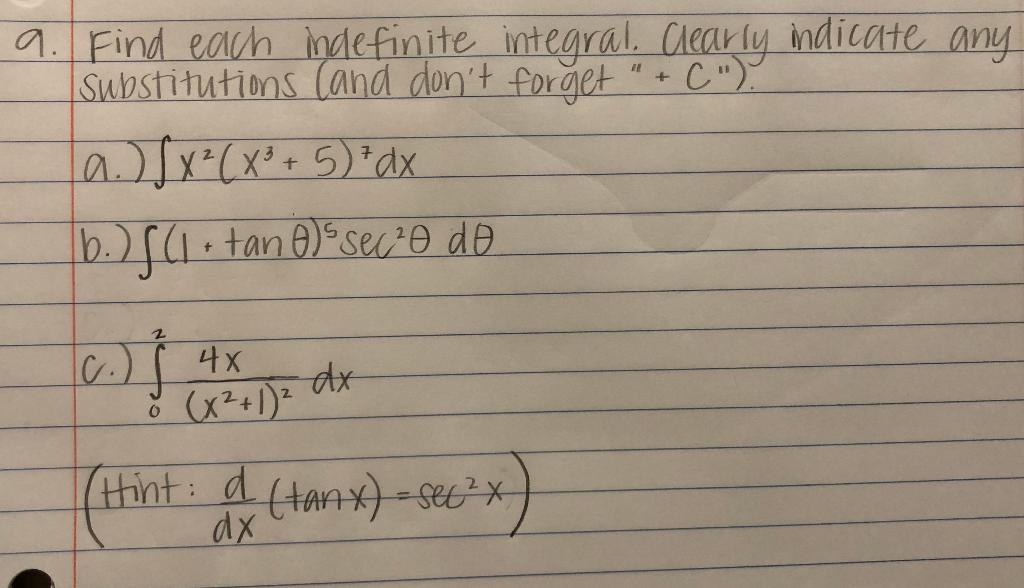 9. Find each indefinite integral. Clearly indicate any
substitutions (and don't forget " + C").
a.) ∫ x² (x³ + 5)⁷ dx
b.) ∫ (1 + tan θ)⁵ sec² θ dθ
c.) ∫₀² 4x / (x² + 1)² dx
(Hint: d/dx (tan x) = sec² x)